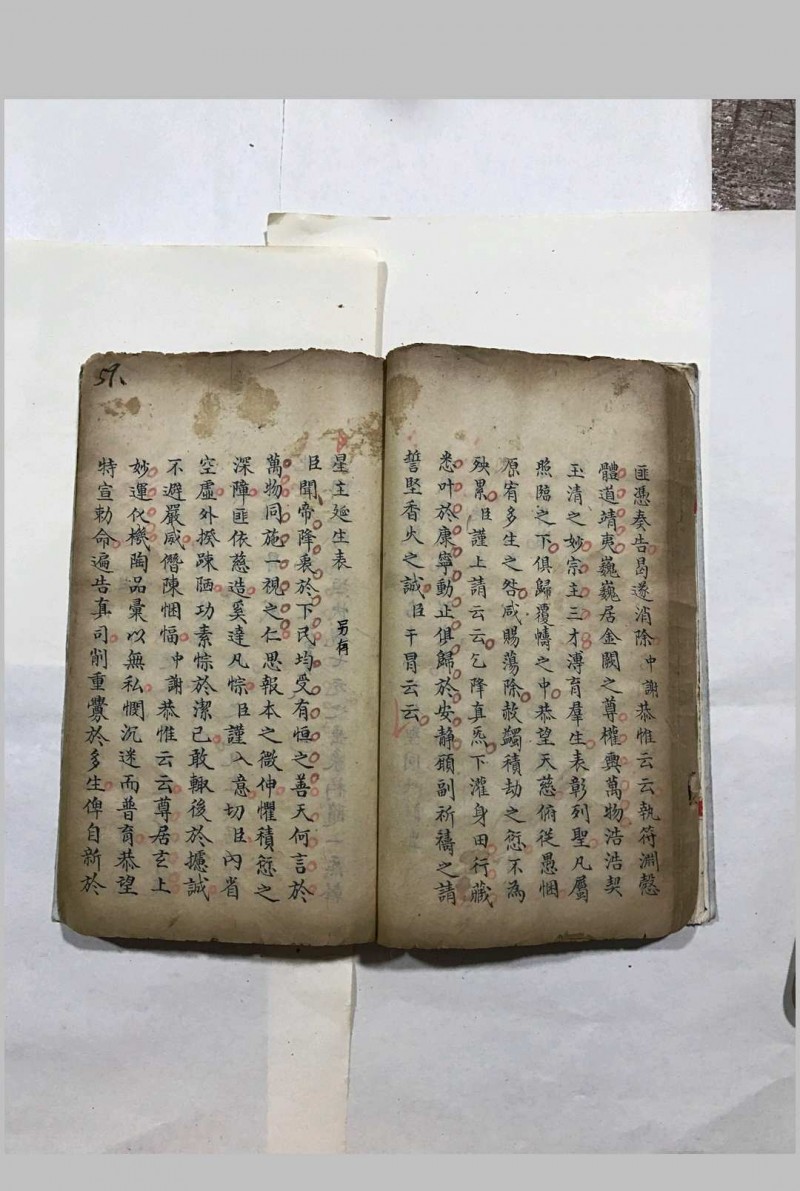 匪憑奏告曷遂消除中謝恭惟云云執符淵慤
體道靖夷巍巍居金闕之尊權輿萬物浩浩契
玉清之妙宗主三才溥育羣生表彰列聖凡屬
照臨之下俱歸覆幬之中恭望天慈俯從愚悃
原宥多生之咎咸賜蕩除赦蠲積劫之愆不為
殃累臣謹上請云云乞降真炁下灌身田行藏
悉叶於康寧動止俱歸於安静頋副祈禱之請
誓堅香火之誠臣干冒云云
星主延生表 另有
臣聞帝降衷於下民均受有恒之善天何言於
萬物同施一視之仁思報本之微伸懼積愆之
深障匪依慈造奚達凡悰臣謹入意切臣內省
空虛外揆踈陋功素悰於潔己敢輙後於攄誠
不避嚴威僭陳悃愊中謝恭惟云云尊居玄上
妙運化機陶品彙以無私憫沉迷而普育恭望
特宣勅命遍告真司削重釁於多生俾自新於
59、